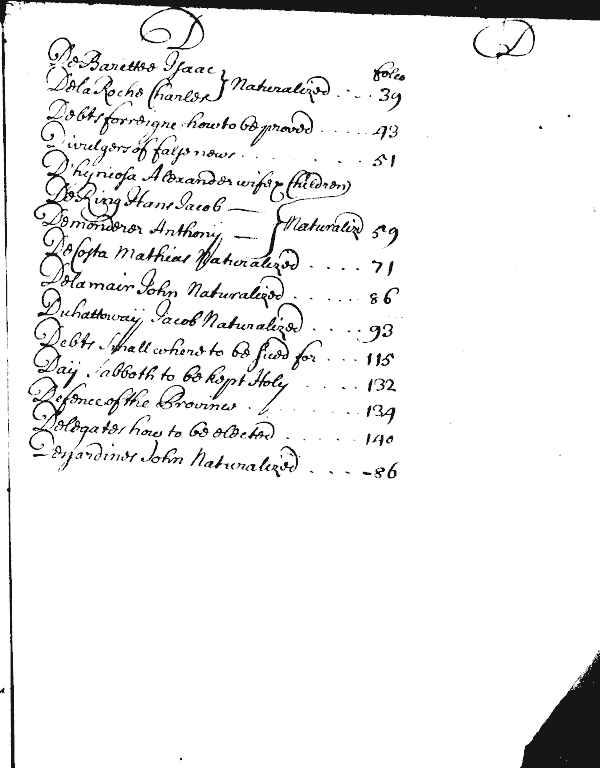 D D
folio
De Barettee Isaac
De la Roche Charles } Naturalized .... 39
Debts forreigne how to be proved ..... 43
Divulgers of false news .......... 51
D'hyniosa Alexander wife & Children
De Ring Hans Jacob —
Demonderer Anthony — } Naturaliz 59
DeCosta Mathias Naturalized .... 71
Delamair John Naturalized .... 86
Duhattoway Jacob Naturalized .... 93
Debts Small where to be sued for ... 115
Day Sabboth to be kept Holy ..... 132
Defence of the Province ......... 134
Delegates how to be elected ....... 140
Desjardines John Naturalized .... -86